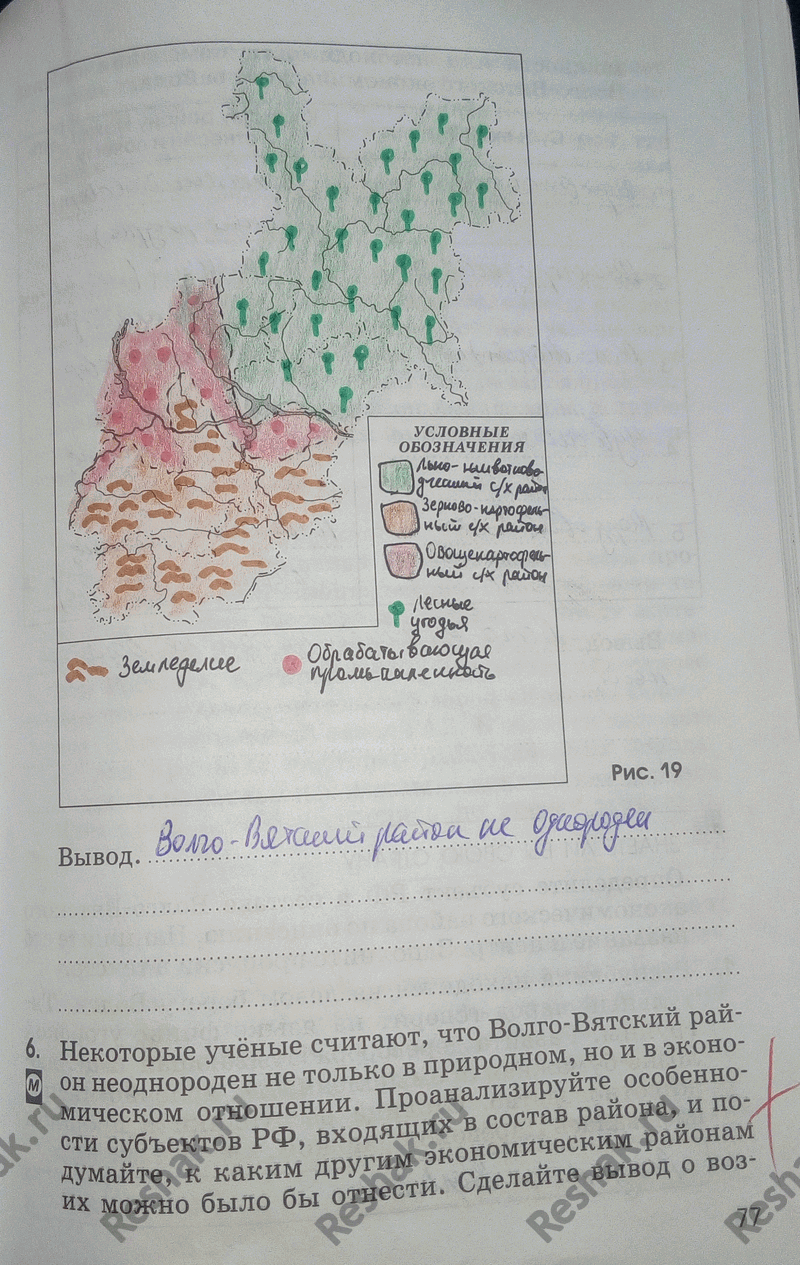 УСЛОВНЫЕ
ОБОЗНАЧЕНИЯ
Льно-животново-
дческий с/х район
Зерново-картофель-
ный с/х район
Овощекартофель-
ный с/х район
Лесные
угодья
Земледелие
Обрабатывающая
промышленность
Рис. 19
Вывод. Волго-Вятский район не однороден
6. Некоторые учёные считают, что Волго-Вятский рай-
М он неоднороден не только в природном, но и в эконо-
мическом отношении. Проанализируйте особенно-
сти субъектов РФ, входящих в состав района, и по-
думайте, к каким другим экономическим районам
их можно было бы отнести. Сделайте вывод о воз-
77
ak.ru
Reshak.ru
Reshak.ru
Reshak.ru
Resha